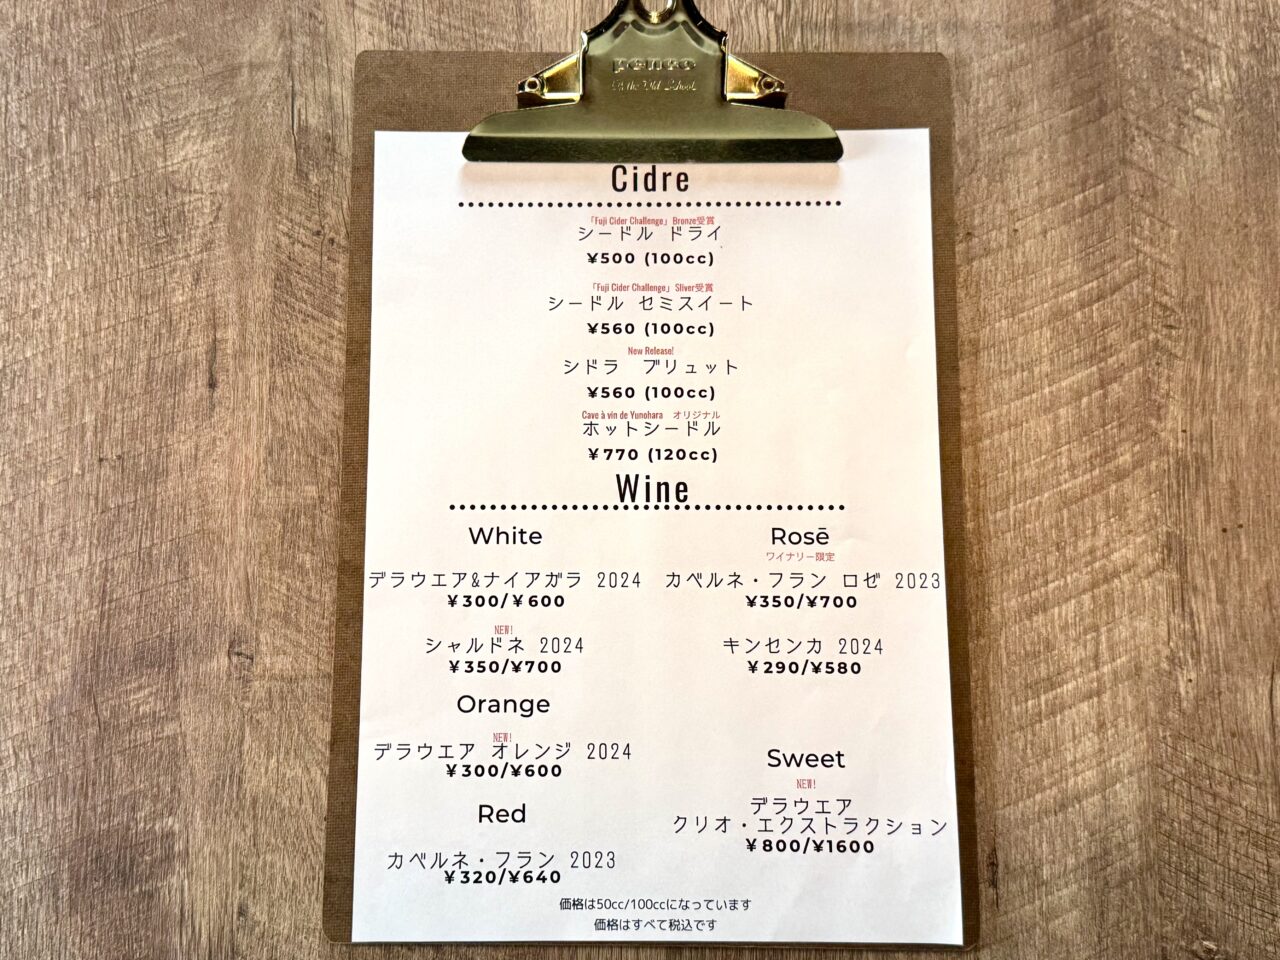 penco
Cidre
「Fuji Cider Challenge」Bronze受賞
シードル ドライ
¥500 (100cc)
「Fuji Cider Challenge」Sliver受賞
シードル セミスイート
¥560 (100cc)
New Release!
シドラ ブリュット
¥560 (100cc)
Cave à vin de Yunohara オリジナル
ホットシードル
¥770 (120cc)
Wine
White
デラウエア&ナイアガラ 2024
¥300/¥600
NEW!
シャルドネ 2024
¥350/¥700
Orange
NEW!
デラウエア オレンジ 2024
¥300/¥600
Red
カベルネ・フラン 2023
¥320/¥640
Rosē
ワイナリー限定
カベルネ・フラン ロゼ 2023
¥350/¥700
キンセンカ 2024
¥290/¥580
Sweet
NEW!
デラウエア
クリオ・エクストラクション
¥800/¥1600
価格は50cc/100ccになっています
価格はすべて税込です